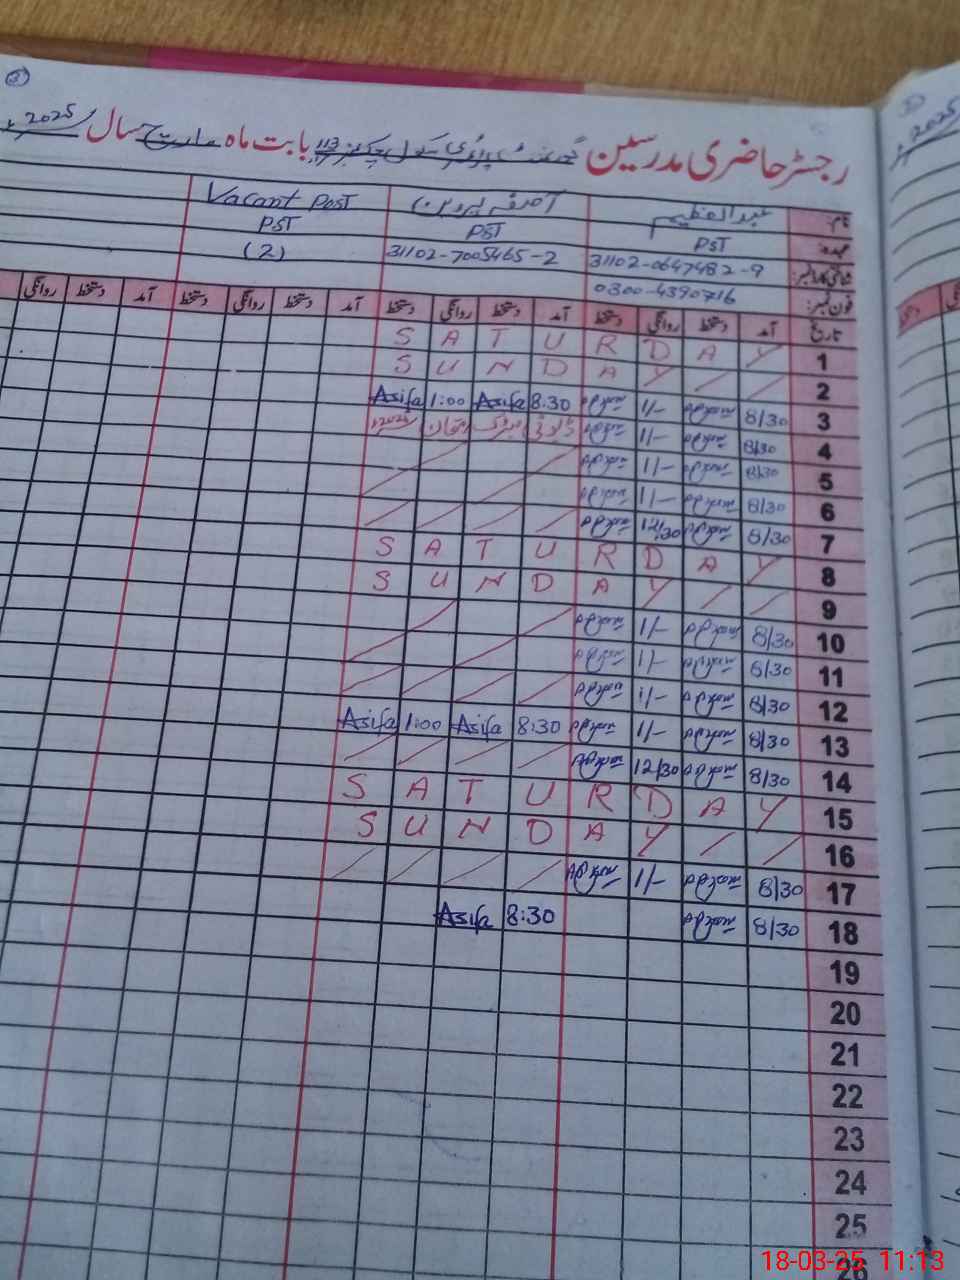 رجسٹر حاضری مدرسین گورنمنٹ پرائمری سکول چک نمبر 113 بابت ماہ مارچ سال 2025ء
نام: عبدالعظیم آصفہ پروین Vacant Post
عہدہ: PST PST PST
شناختی کارڈ نمبر: 31102-0647482-9 31102-7005465-2 (2)
فون نمبر: 0300-4390716
تاریخ آمد دستخط روانگی دستخط آمد دستخط روانگی دستخط آمد دستخط روانگی دستخط آمد دستخط روانگی
1 S A T U R D A Y
2 S U N D A Y
3 8/30 1/- 8:30 Asifa 1:00 Asifa
4 8/30 1/- ڈیوٹی میٹرک امتحان 2025ء
5 8/30 1/-
6 8/30 1/-
7 8/30 12/30
8 S A T U R D A Y
9 S U N D A Y
10 8/30 1/-
11 8/30 1/-
12 8/30 1/-
13 8/30 1/- 8:30 Asifa 1:00 Asifa
14 8/30 12/30
15 S A T U R D A Y
16 S U N D A Y
17 8/30 1/-
18 8/30 8:30 Asifa
19
20
21
22
23
24
25
26
2025
18-03-25 11:13